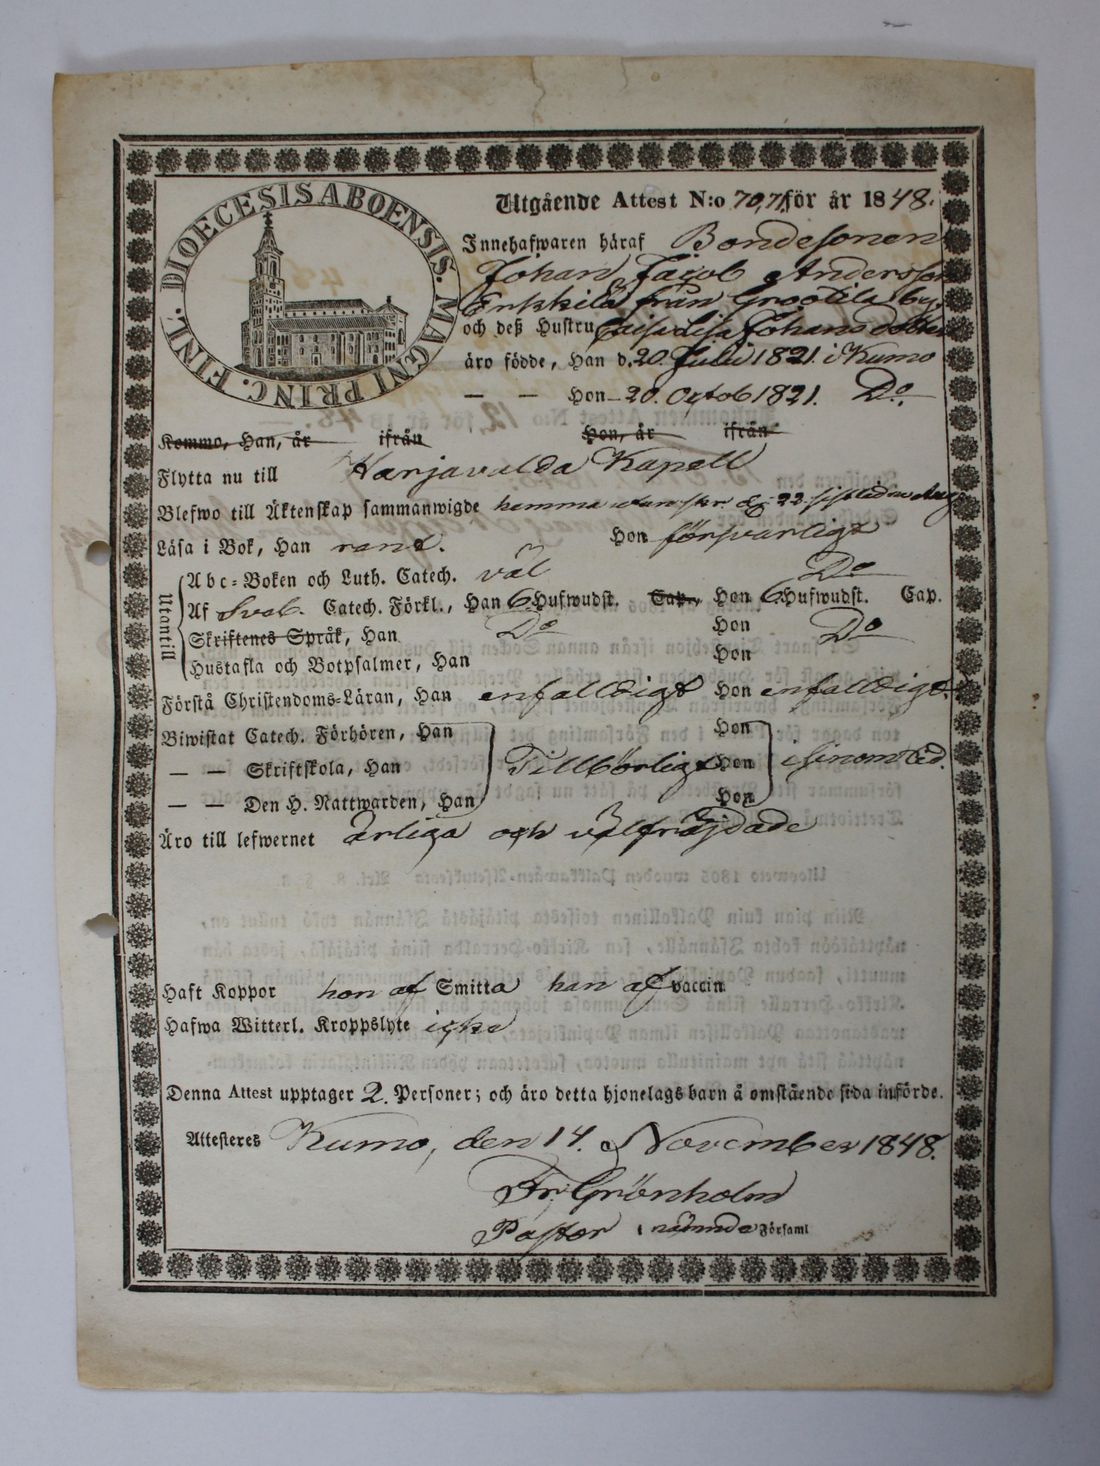 DIOECESIS ABOENSIS. MAGNI PRINC. FINL.
Utgående Attest N:o 70,71 för år 1848.
Innehafwaren häraf Bondesonen
Johan Jacob Andersson
Erkkilä från Grootila by
och deß Hustru Caisa Lisa Johansdotter
äro födde, Han d. 20. Julii 1821. i Kumo
— — Hon — 20. Octob 1821. Do.
Kommo, Han, år ifrån Hon, år ifrån
Flytta nu till Harjavalda Kapell
Blefwo till Äktenskap sammanwigde hemma d. 22 sistledne Aug
Läsa i Bok, Han rent. Hon försvarligt
Utantill
Abc-Boken och Luth. Catech. väl Do
Af Sveb. Catech. Förkl., Han 6 Hufwudst. Cap., Hon 6 Hufwudst. Cap.
Skriftenes Språk, Han Do Hon Do
Hustafla och Botpsalmer, Han Hon
Förstå Christendoms-Läran, Han enfalldigt Hon enfalldigt.
Biwistat Catech. Förhören, Han Hon
— — Skriftskola, Han Tillbörligt Hon i sinom tid.
— — Den H. Nattwarden, Han Hon
Äro till lefwernet ärliga och välfräjdade
Haft Koppor hon af Smitta han af vaccin
Hafwa Witterl. Kroppslyte icke
Denna Attest upptager 2. Personer; och äro detta hjonelags barn å omstående sida införde.
Attesteres Kumo, den 14. November 1848.
Fr. Grönholm
Pastor i nämnde Församl